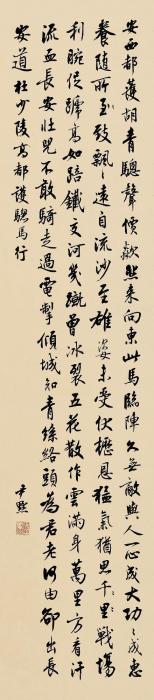 安西都護胡青驄聲價歘然來向東此馬臨陣久無敵與人一心成大功〻成惠
養隨所致飄〻遠自流沙至雄姿未受伏櫪恩猛氣猶思千里戰場
利腕促蹄高如踣鐵交河幾蹴曾冰裂五花散作雲滿身萬里方看汗
流血長安壯兒不敢騎走過電掣傾城知青絲絡頭為君老何由卻出長
安道 杜少陵高都護驄馬行
尹默